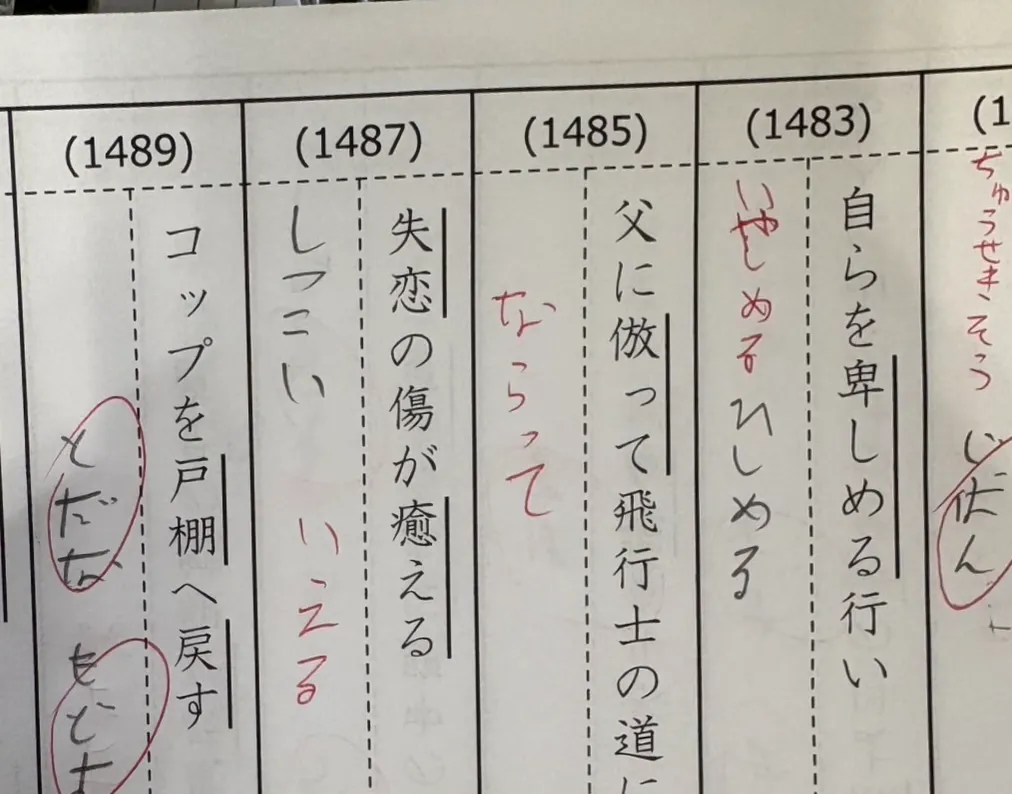 (1
ちゅうせきそう
(1483)
自らを卑しめる行い
いやしめる ひしめる
(1485)
父に倣って飛行士の道に
ならって
(1487)
失恋の傷が癒える
しつこい いえる
(1489)
コップを戸棚へ戻す
とだな もどす